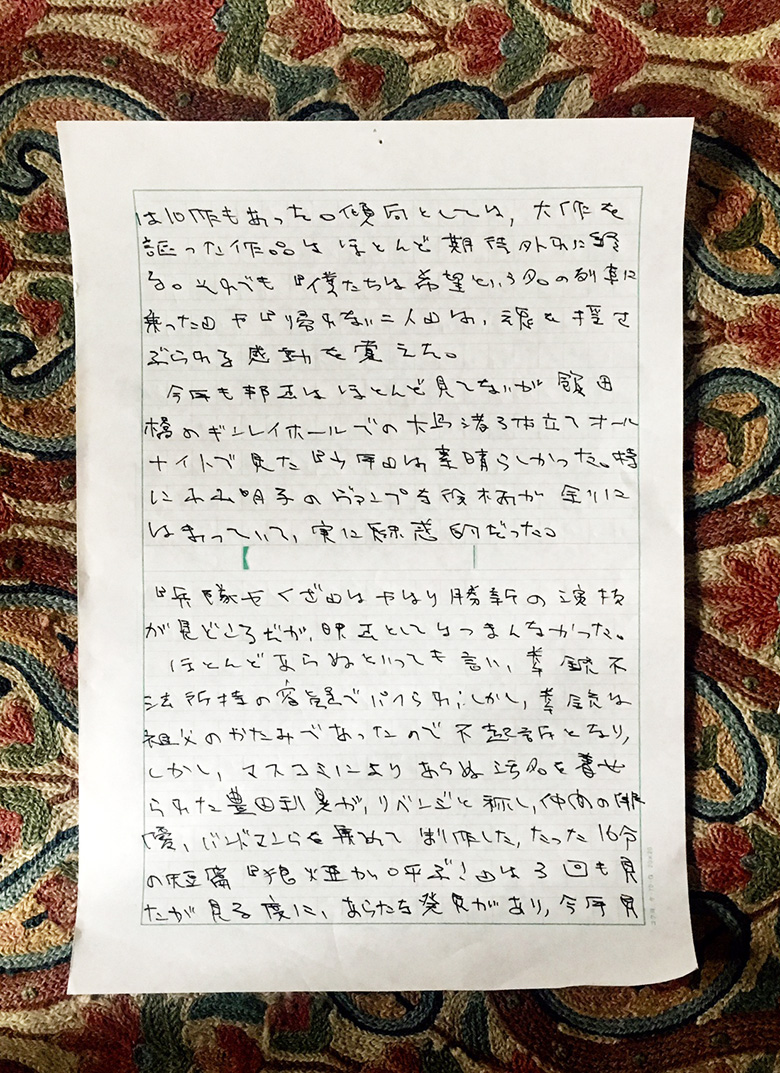 は10作もあった。傾向としては，大作を
謳った作品はほとんど期待外れに終
る。それでも『僕たちは希望という名の列車に
乗った』や『帰れない二人』は，魂を揺さ
ぶられる感動を覚えた。
今年も邦画はほとんど見てないが飯田
橋のギンレイホールでの大島渚3本立てオール
ナイトで見た『少年』は素晴らしかった。特
に小山明子のヴァンプな役柄が余りに
はまっていて，実に魅惑的だった。
『兵隊やくざ』はやはり勝新の演技
が見どころだが，映画としてはつまんなかった。
ほとんどあらぬといっても言い，拳銃不
法所持の容疑でパイられ，しかし，拳銃は
祖父のかたみであったので不起訴となり，
しかし，マスコミによりあらぬ汚名を着せ
られた豊田利晃が，リベンジと称し，仲間の俳
優，バンドマンらを集めて制作した，たった16分
の短篇『狼煙が呼ぶ』は3回も見
たが見る度に，あらたな発見があり，今年見